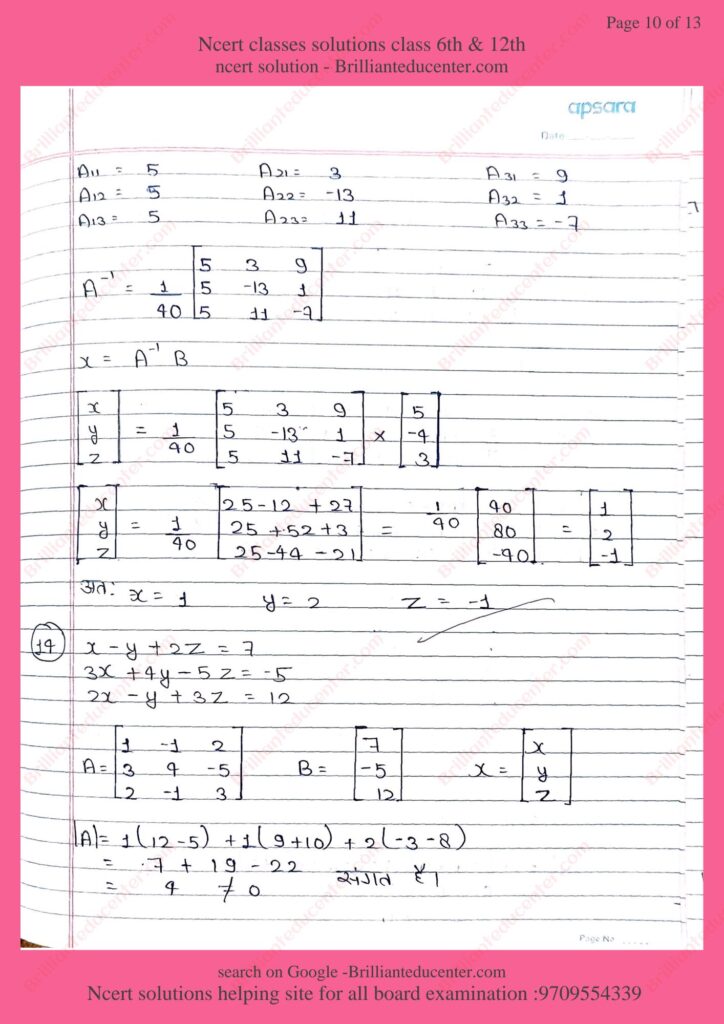 Page 10 of 13
Ncert classes solutions class 6th & 12th
ncert solution - Brillianteducenter.com
apsara
Date
A11 = 5 A21= 3 A31 = 9
A12 = 5 A22= -13 A32 = 1
A13 = 5 A23= 11 A33 = -7
A⁻¹ = 1/40 [5 3 9
5 -13 1
5 11 -7]
x = A⁻¹ B
[x y z] = 1/40 [5 3 9
5 -13 1
5 11 -7] × [5 -4 3]
[x y z] = 1/40 [25-12 + 27
25 +52+3
25-44 -21] = 1/40 [40 80 -40] = [1 2 -1]
अतः x = 1 y= 2 z = -1
14 x - y + 2z = 7
3x + 4y - 5z = -5
2x - y + 3z = 12
A= [1 -1 2
3 4 -5
2 -1 3] B= [7 -5 12] x = [x y z]
|A|= 1(12-5) +1(9+10) + 2(-3-8)
= 7 + 19 - 22
= 4 ≠ 0 संगत है।
Page No
search on Google -Brillianteducenter.com
Ncert solutions helping site for all board examination :9709554339